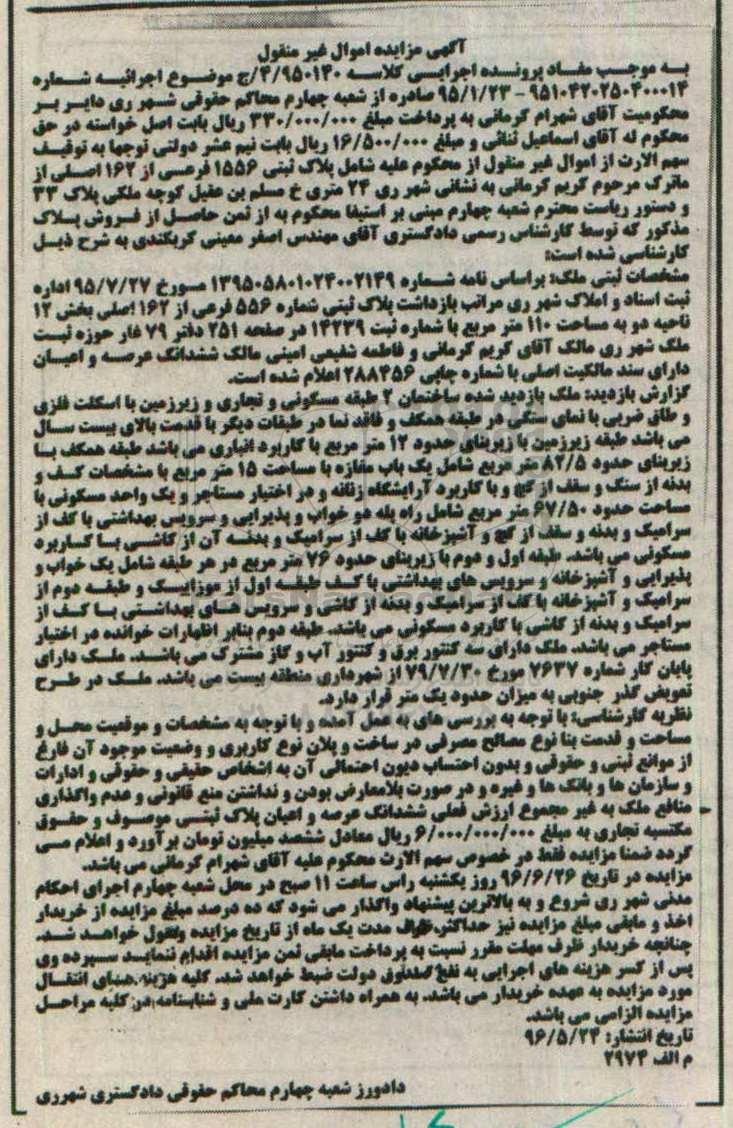 آگهی مزایده اموال غیر منقول
به موجب مفاد پرونده اجرایی کلاسه ۴/۹۵۰۱۴۰/ج موضوع اجرائیه شماره
۹۵۱۰۴۲۰۲۵۰۴۰۰۰۱۴ - ۹۵/۱/۲۳ صادره از شعبه چهارم محاکم حقوقی شهر ری دایر بر
محکومیت آقای شهرام کرمانی به پرداخت مبلغ ۳۳۰/۰۰۰/۰۰۰ ریال بابت اصل خواسته در حق
محکوم له آقای اسماعیل ثنائی و مبلغ ۱۶/۵۰۰/۰۰۰ ریال بابت نیم عشر دولتی توجها به توقیف
سهم الارث از اموال غیر منقول از محکوم علیه شامل پلاک ثبتی ۱۵۵۶ فرعسی از ۱۶۲ اصلی از
ماترک مرحوم کریم کرمانی به نشانی شهر ری ۲۴ متری خ مسلم بن عقیل کوچه ملکی پلاک ۳۳
و دستور ریاست محترم شعبه چهارم مبنی بر استیفا محکوم به از ثمن حاصل از فروش پلاک
مذکور که توسط کارشناس رسمی دادگستری آقای مهندس اصغر معینی کربکندی به شرح ذیل
کارشناسی شده است:
مشخصات ثبتی ملک: براساس نامه شماره ۱۳۹۵۰۵۸۰۱۰۲۴۰۰۲۱۴۹ مورخ ۹۵/۷/۲۷ اداره
ثبت اسناد و املاک شهر ری مراتب بازداشت پلاک ثبتی شماره ۵۵۶ فرعی از ۱۶۲ اصلی بخش ۱۲
ناحیه دو به مساحت ۱۱۰ متر مربع با شماره ثبت ۱۴۲۳۹ در صفحه ۲۵۱ دفتر ۷۹ غار حوزه ثبت
ملک شهر ری مالک آقای کریم کرمانی و فاطمه شفیعی امینی مالک ششدانگ عرصه و اعیان
دارای سند مالکیت اصلی با شماره چاپی ۲۸۸۴۵۶ اعلام شده است.
گزارش بازدید: ملک بازدید شده ساختمان ۲ طبقه مسکونی و تجاری و زیرزمین با اسکلت فلزی
و طاق ضربی با نمای سنگی در طبقه همکف و فاقد نما در طبقات دیگر با قدمت بالای بیست سال
می باشد طبقه زیرزمین با زیربنای حدود ۱۲ متر مربع با کاربرد انباری می باشد طبقه همکف با
زیربنای حدود ۸۲/۵ متر مربع شامل یک باب مغازه با مساحت ۱۵ متر مربع با مشخصات کف و
بدنه از سنگ و سقف از گچ و با کاربرد آرایشگاه زنانه و در اختیار مستاجر و یک واحد مسکونی با
مساحت حدود ۶۷/۵۰ متر مربع شامل راه پله دو خواب و پذیرایی و سرویس بهداشتی با کف از
سرامیک و بدنه و سقف از گچ و آشپزخانه با کف از سرامیک و بدنه آن از کاشی با کاربرد
مسکونی می باشد. طبقه اول و دوم با زیربنای حدود ۷۶ متر مربع در هر طبقه شامل یک خواب و
پذیرایی و آشپزخانه و سرویس های بهداشتی با کف طبقه اول از موزاییک و طبقه دوم از
سرامیک و آشپزخانه با کف از سرامیک و بدنه از کاشی و سرویس های بهداشتی با کف از
سرامیک و بدنه از کاشی با کاربرد مسکونی می باشد. طبقه دوم بنابر اظهارات خوانده در اختیار
مستاجر می باشد. ملک دارای سه کنتور برق و کنتور آب و گاز مشترک می باشد. ملک دارای
پایان کار شماره ۷۶۳۷ مورخ ۷۹/۷/۳۰ از شهرداری منطقه بیست می باشد. ملک در طرح
تعویض گذر جنوبی به میزان حدود یک متر قرار دارد.
نظریه کارشناسی: با توجه به بررسی های به عمل آمده و با توجه به مشخصات و موقعیت محل و
مساحت و قدمت بنا نوع مصالح مصرفی در ساخت و پلان نوع کاربری و وضعیت موجود آن فارغ
از موانع ثبتی و حقوقی و بدون احتساب دیون احتمالی آن به اشخاص حقیقی و حقوقی و ادارات
و سازمان ها و بانک ها و غیره و در صورت بلامعارض بودن و نداشتن منع قانونی و عدم واگذاری
منافع ملک به غیر مجموع ارزش فعلی ششدانگ عرصه و اعیان پلاک ثبتی موصوف و حقوق
مکتسبه تجاری به مبلغ ۶/۰۰۰/۰۰۰/۰۰۰ ریال معادل ششصد میلیون تومان برآورد و اعلام می
گردد ضمنا مزایده فقط در خصوص سهم الارث محکوم علیه آقای شهرام کرمانی می باشد.
مزایده در تاریخ ۹۶/۶/۲۶ روز یکشنبه راس ساعت ۱۱ صبح در محل شعبه چهارم اجرای احکام
مدنی شهر ری شروع و به بالاترین پیشنهاد واگذار می شود که ده درصد مبلغ مزایده از خریدار
اخذ و مابقی مبلغ مزایده نیز حداکثر ظرف مدت یک ماه از تاریخ مزایده وصول خواهد شد.
چنانچه خریدار ظرف مهلت مقرر نسبت به پرداخت مابقی ثمن مزایده اقدام ننماید سپرده وی
پس از کسر هزینه های اجرایی به نفع صندوق دولت ضبط خواهد شد. کلیه هزینه های انتقال
مورد مزایده به عهده خریدار می باشد. به همراه داشتن کارت ملی و شناسنامه در کلیه مراحل
مزایده الزامی می باشد.
تاریخ انتشار: ۹۶/۵/۲۴
م الف ۲۹۷۴
دادورز شعبه چهارم محاکم حقوقی دادگستری شهرری